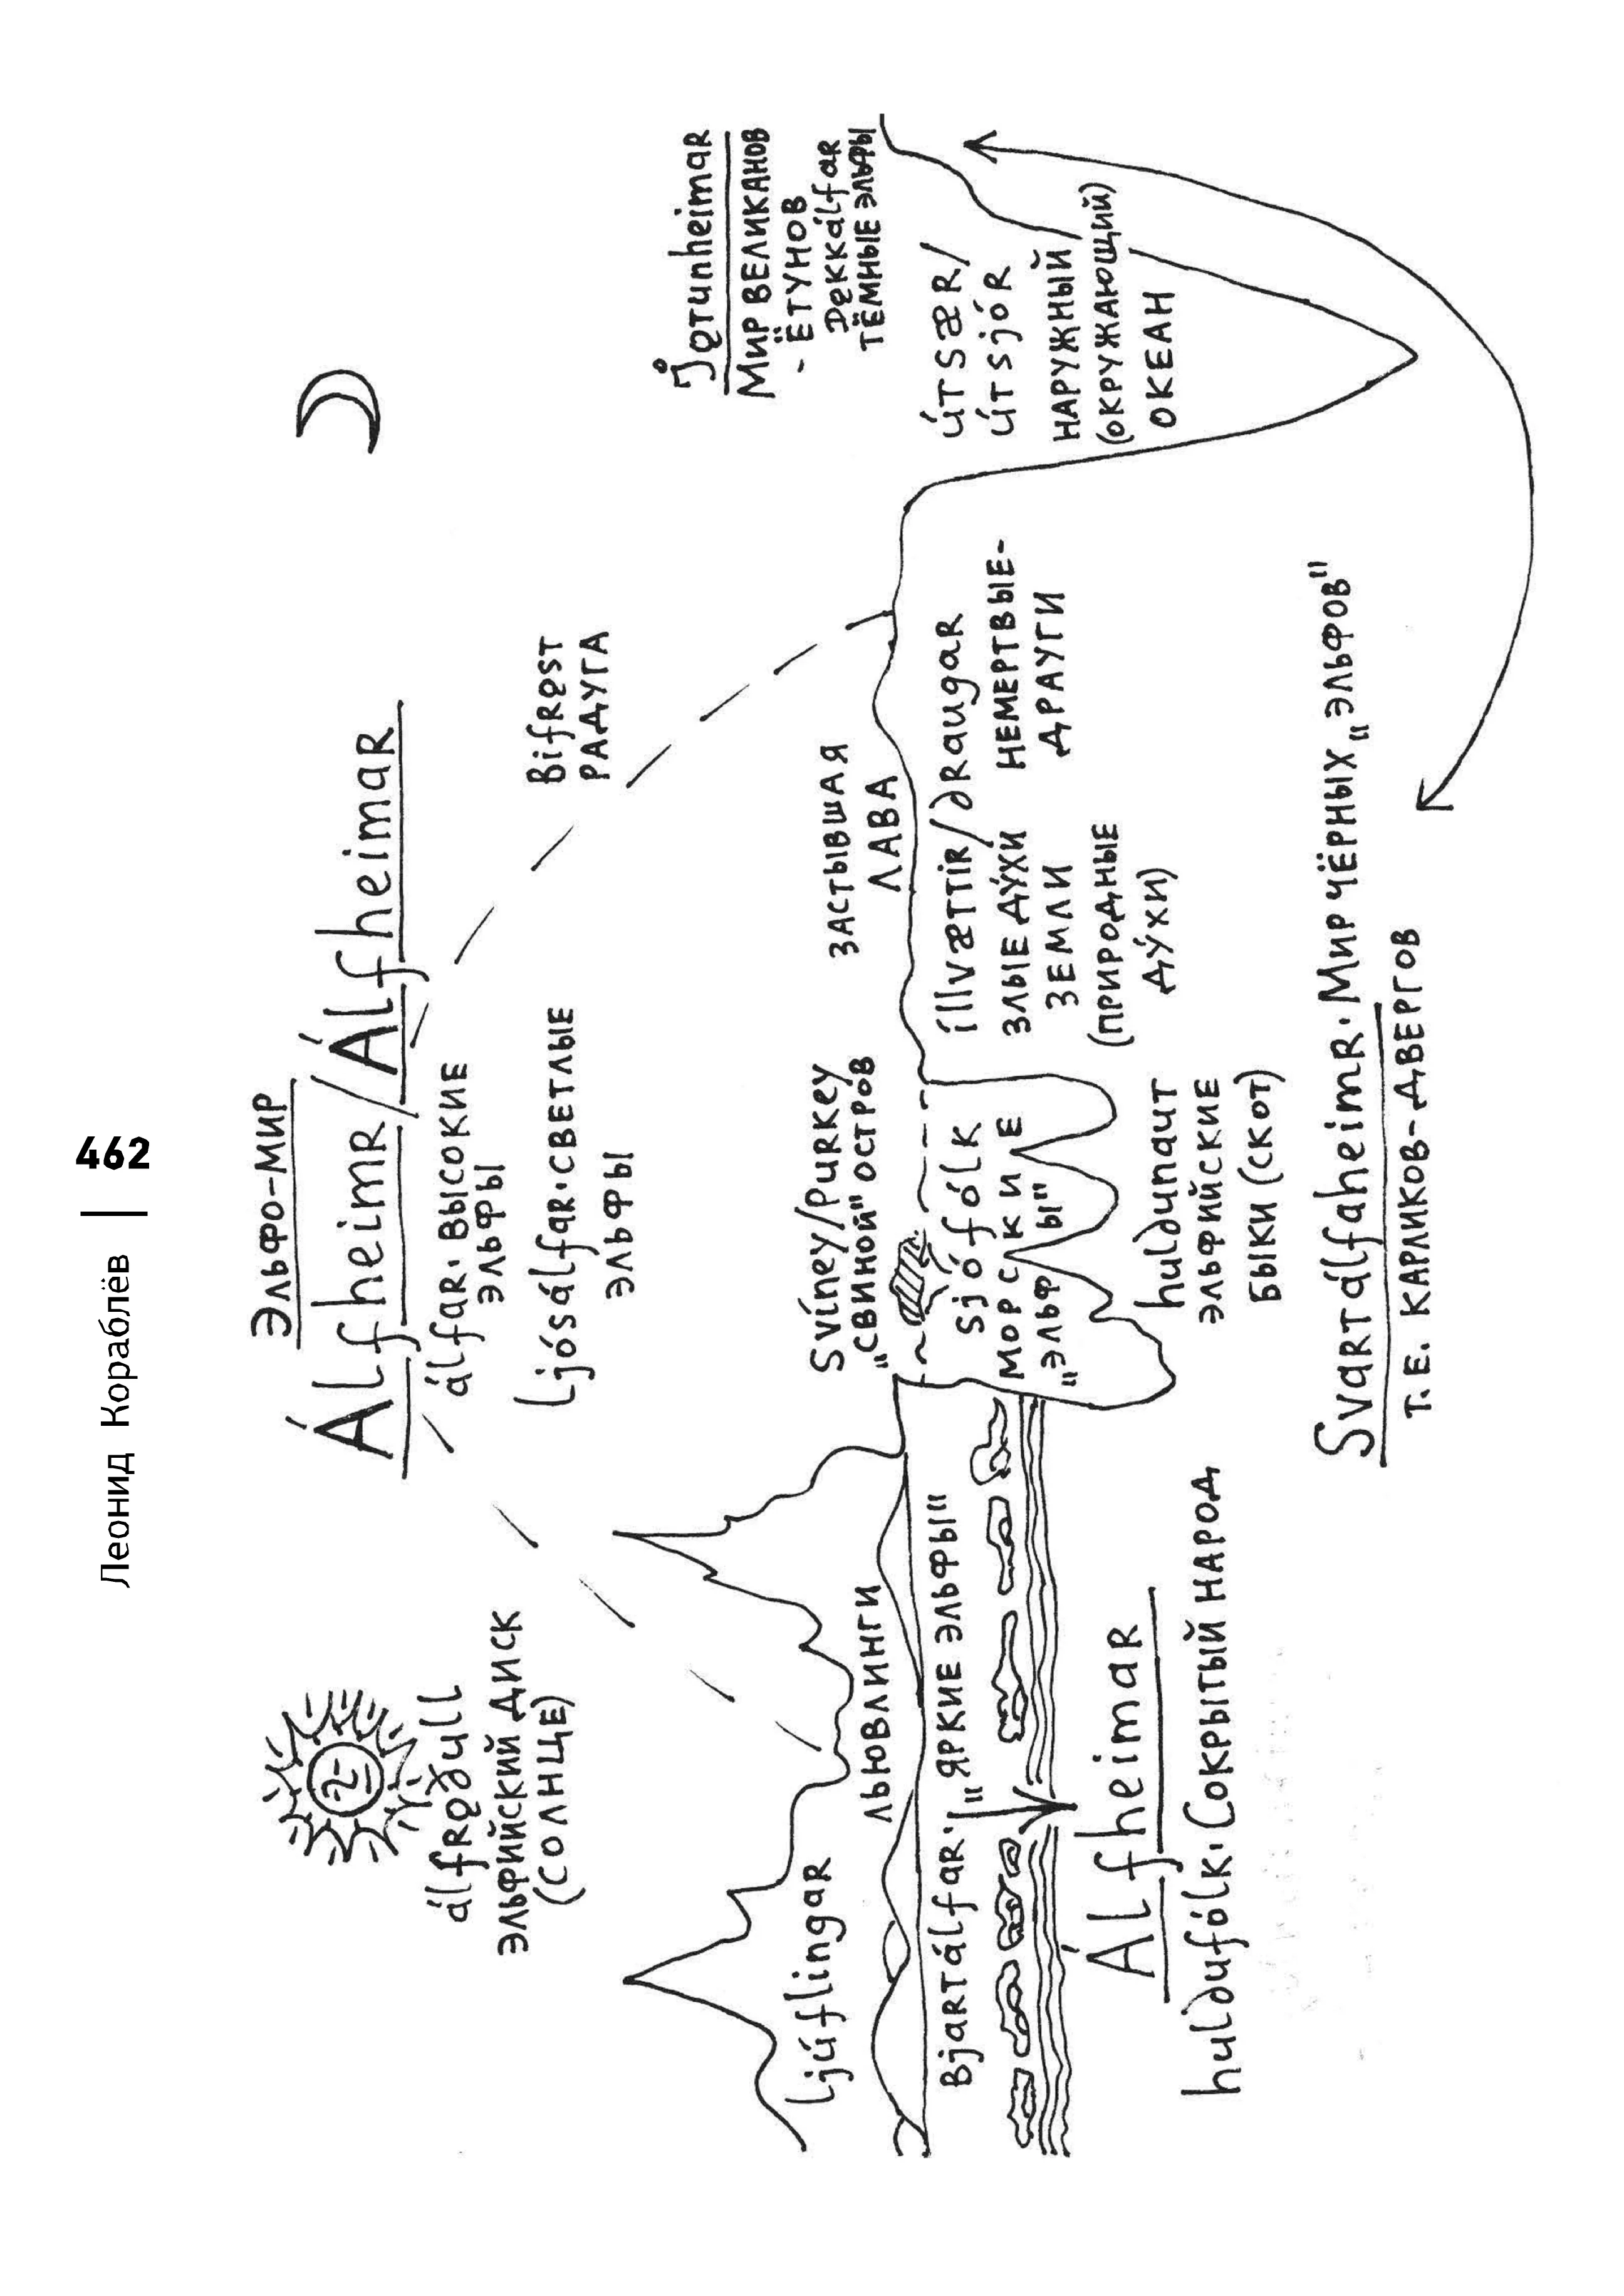 Леонид Кораблёв | 462
ЭЛЬФО-МИР
Álfheimr/Álfheimar
álfar. ВЫСОКИЕ
ЭЛЬФЫ
Ljósálfar. СВЕТЛЫЕ
ЭЛЬФЫ
álfrǫðull
ЭЛЬФИЙСКИЙ ДИСК
(СОЛНЦЕ)
Bifrǫst
РАДУГА
Jǫtunheimar
МИР ВЕЛИКАНОВ
- ЁТУНОВ
Dǫkkálfar
ТЁМНЫЕ ЭЛЬФЫ
Ljúflingar
ЛЬЮВЛИНГИ
Svíney/Purkey
„СВИНОЙ" ОСТРОВ
ЗАСТЫВШАЯ
ЛАВА
Bjartálfar. „ЯРКИЕ ЭЛЬФЫ"
sjófólk
МОРСКИЕ
„ЭЛЬФЫ"
illvættir/draugar
ЗЛЫЕ ДУ́ХИ
ЗЕМЛИ
(ПРИРОДНЫЕ
ДУ́ХИ)
НЕМЕРТВЫЕ-
ДРАУГИ
útsær/
útsjór
НАРУЖНЫЙ
(ОКРУЖАЮЩИЙ)
ОКЕАН
Álfheimar
huldufólk. СОКРЫТЫЙ НАРОД
huldunaut
ЭЛЬФИЙСКИЕ
БЫКИ (СКОТ)
Svartálfaheimr. МИР ЧЁРНЫХ „ЭЛЬФОВ"
Т.Е. КАРЛИКОВ-ДВЕРГОВ